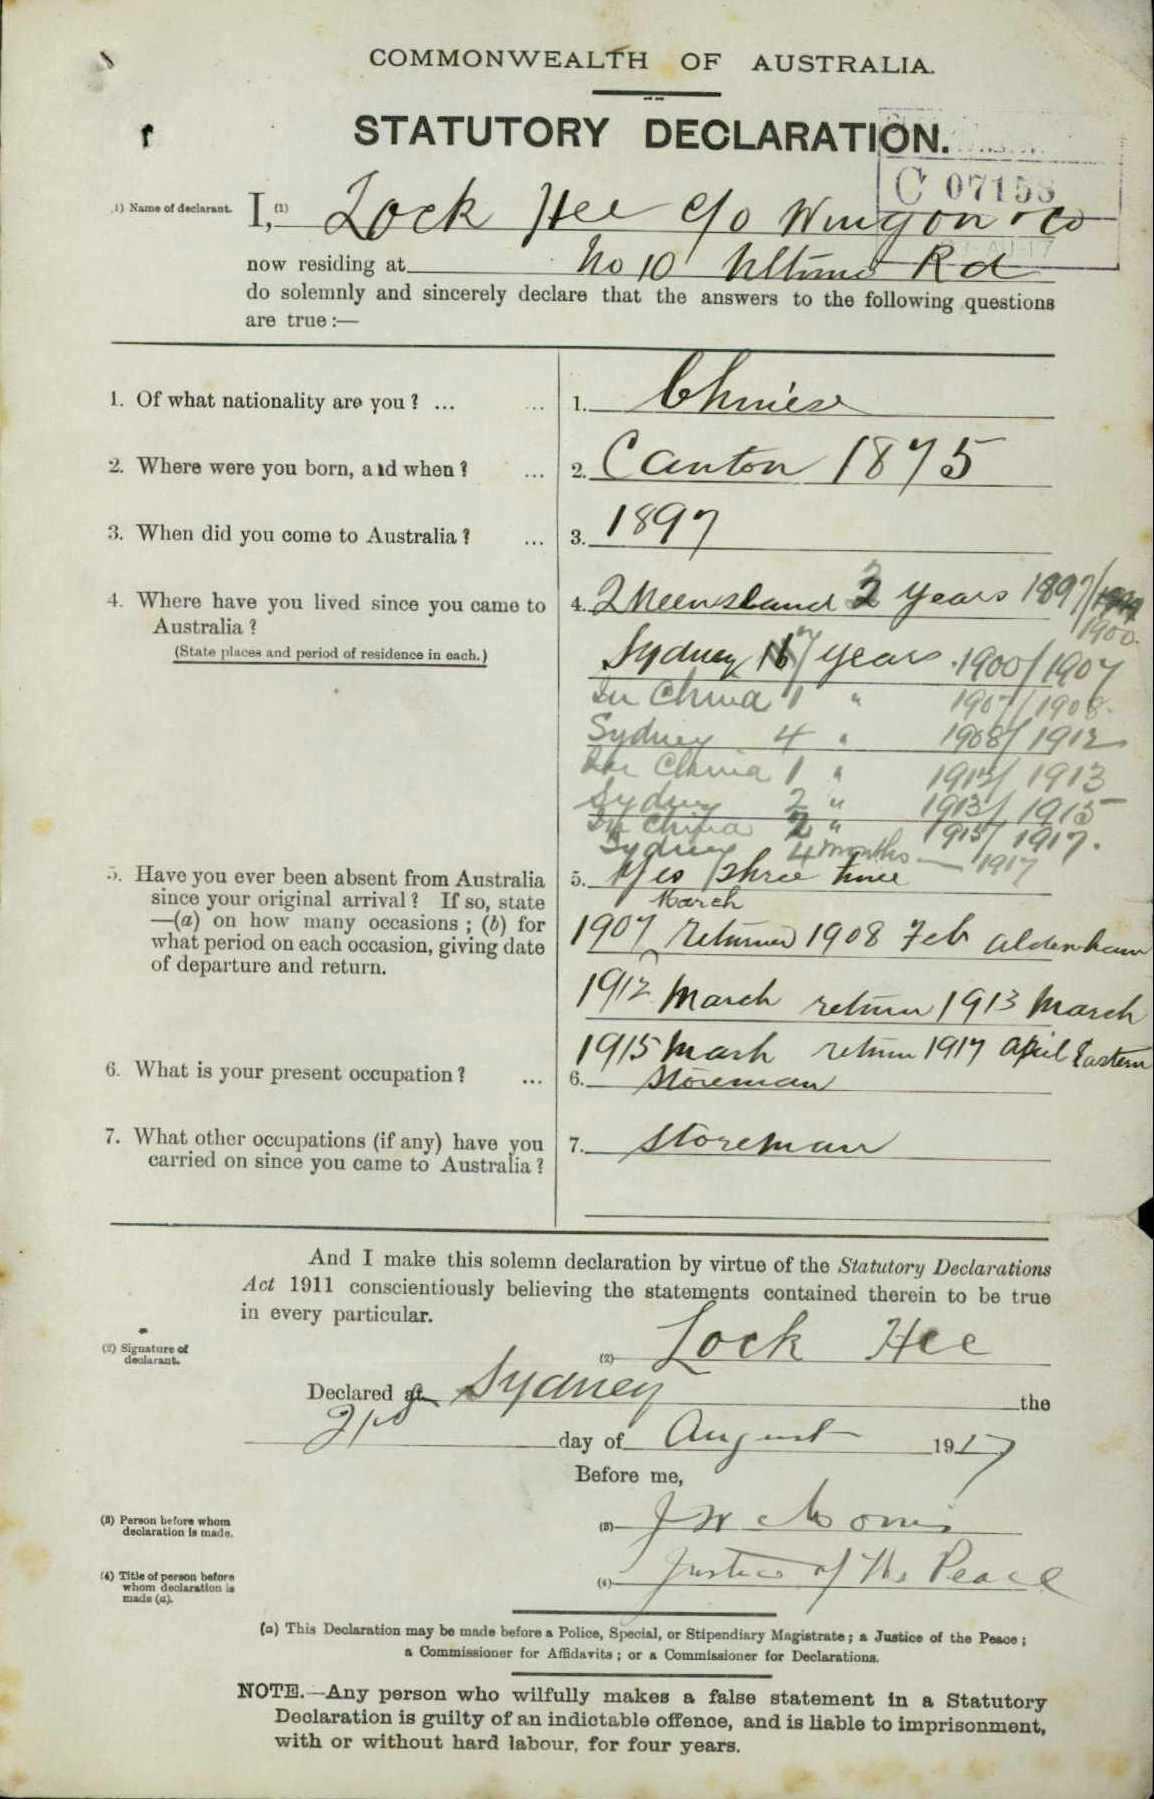 COMMONWEALTH OF AUSTRALIA.
STATUTORY DECLARATION.
C 07153
(1) Name of declarant. I, (1) Lock Hee c/o Wingon & Co
now residing at No 10 Ultimo Rd
do solemnly and sincerely declare that the answers to the following questions
are true:—
1. Of what nationality are you? ... ... 1. Chinese
2. Where were you born, and when? ... 2. Canton 1875
3. When did you come to Australia? ... 3. 1897
4. Where have you lived since you came to 4. Queensland 3 years 1897/
Australia? 1900.
(State places and period of residence in each.) Sydney 7 years 1900/1907
In China 1 " 1907/1908.
Sydney 4 " 1908/1912
In China 1 " 1912/1913
Sydney 2 " 1913/1915
In China 2 " 1915/1917.
Sydney 4 months — 1917
5. Have you ever been absent from Australia 5. Yes three time
since your original arrival? If so, state March
—(a) on how many occasions; (b) for 1907 Returned 1908 Feb Aldenham
what period on each occasion, giving date
of departure and return. 1912 March return 1913 March
1915 Mash return 1917 April Eastern
6. What is your present occupation? ... 6. Storeman
7. What other occupations (if any) have you 7. Storeman
carried on since you came to Australia?
And I make this solemn declaration by virtue of the Statutory Declarations
Act 1911 conscientiously believing the statements contained therein to be true
in every particular.
(2) Signature of declarant. (2) Lock Hee
Declared at Sydney the
21st day of August 1917
Before me,
(3) Person before whom declaration is made. (3) J W Morris
(4) Title of person before whom declaration is made (a). (4) Justice of the Peace
(a) This Declaration may be made before a Police, Special, or Stipendiary Magistrate; a Justice of the Peace;
a Commissioner for Affidavits; or a Commissioner for Declarations.
NOTE.—Any person who wilfully makes a false statement in a Statutory
Declaration is guilty of an indictable offence, and is liable to imprisonment,
with or without hard labour, for four years.